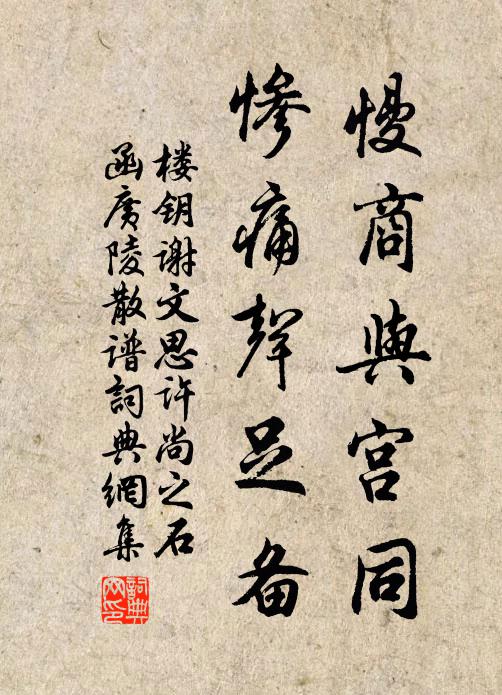 慢商與宫同
惨痛聲足备
楼钥谢文思许尚之石
函廣陵散谱詞典網集
詞典网印